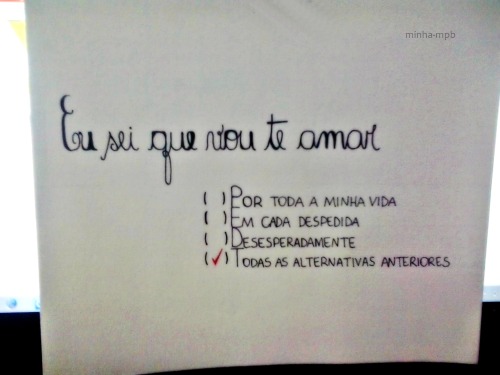 minha-mpb
Eu sei que vou te amar
( ) POR TODA A MINHA VIDA
( ) EM CADA DESPEDIDA
( ) DESESPERADAMENTE
(✓) TODAS AS ALTERNATIVAS ANTERIORES